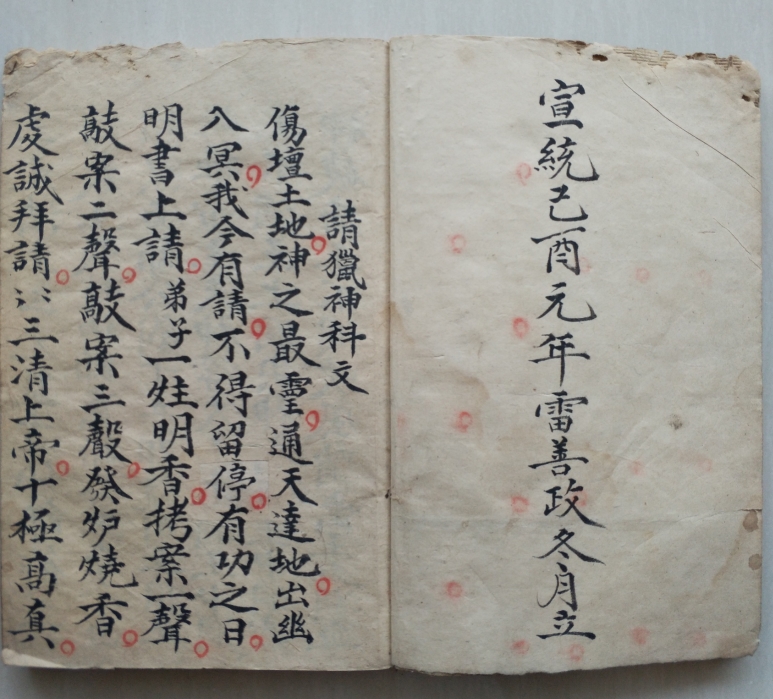 宣統己酉元年雷善政冬月立
請獵神科文
傷壇土地神之最靈通天達地出幽
入冥我今有請不得留停有功之日
明書上請弟子一炷明香拷案一聲
敲案二聲敲案三聲發炉燒香
虔誠拜請⺀⺀三清上帝十極高真